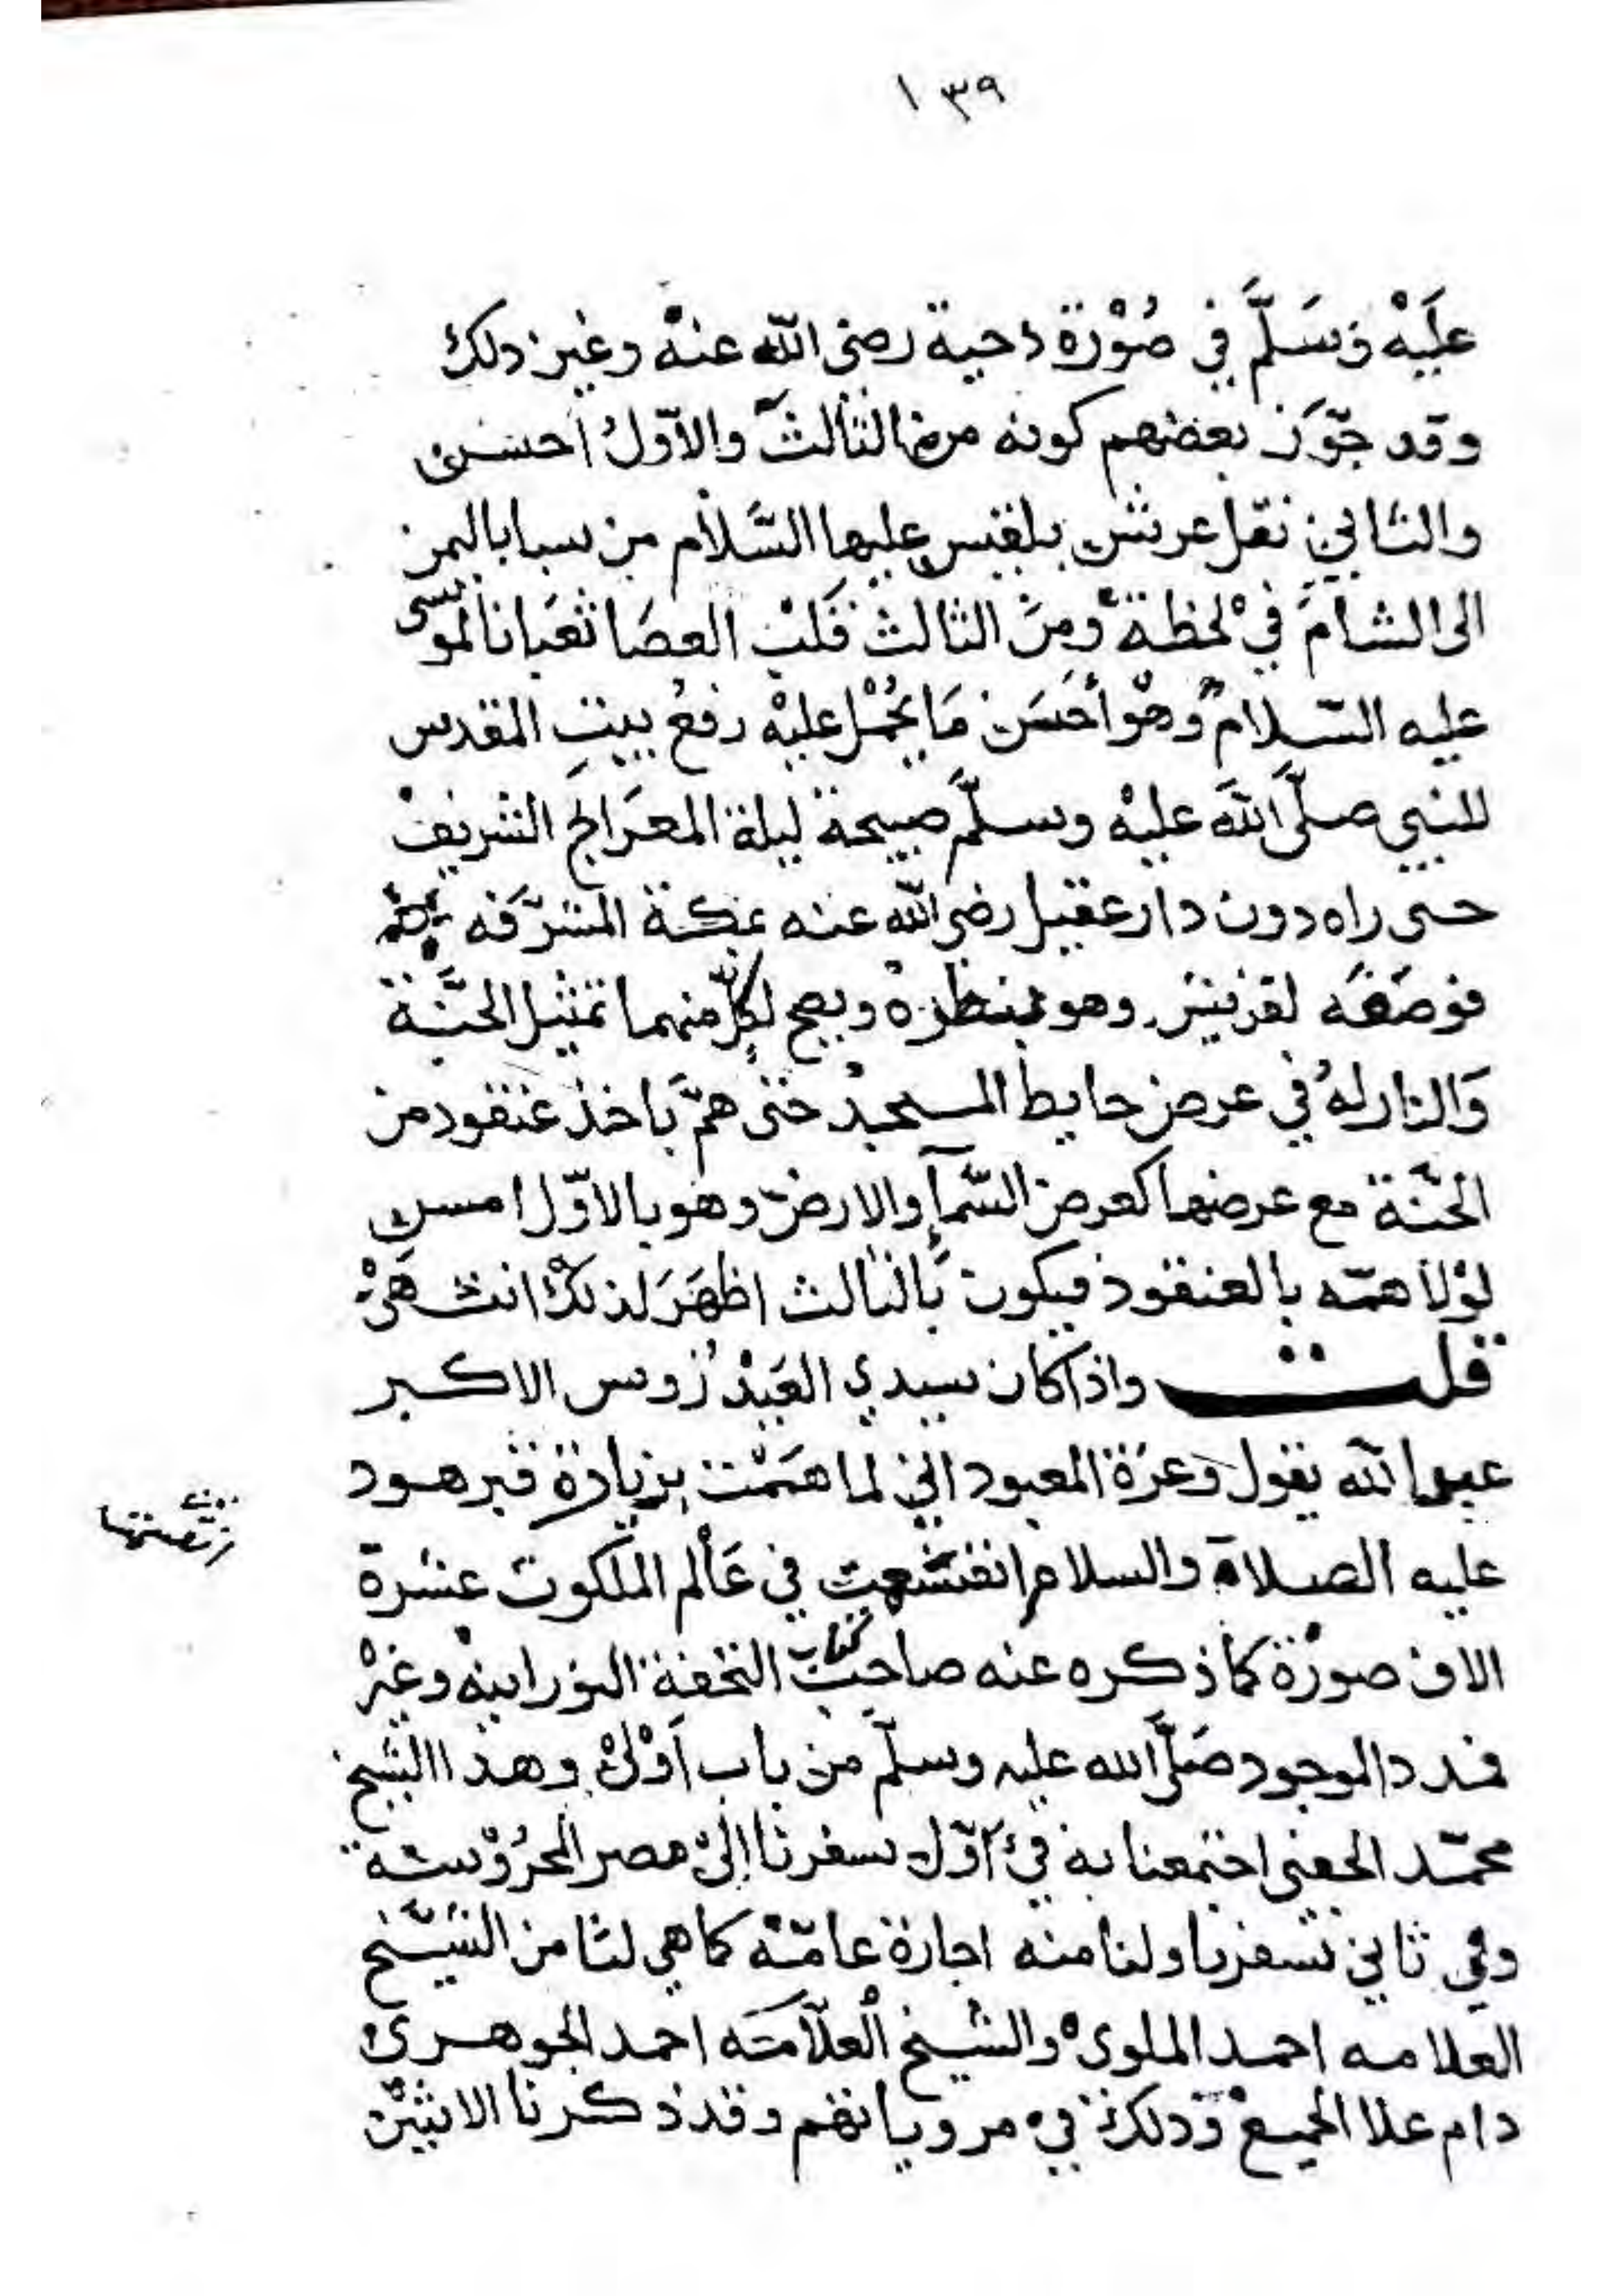 ١٣٩
عليْه وَسَلَّمَ في صُوْرَة دحية رضى الله عنه وغير ذلك
وقد جَوّزَ بعضهم كونه من الثالث والأول أحسن
والثاني نقل عرش بلقيس عليها السَّلام من سبا باليمن
الى الشام في لحظة ومن الثالث قلب العصا ثعبانا لموسى
عليه السّلام وهو أحسَن مَا يحمل عليْه رفع بيت المقدس
للنبي صلَّى اللَّه عليْه وسلَّم صبيحة ليلة المعراج الشريف
حتى راه دون دار عقيل رضي الله عنه بمكة المشرّفه
فوصَفَه لقريش وهو ينظره ويصح لكل منهما تمثيل الجنَّة
وَالنار لهُ في عرض حايط المسجد حتى همَّ باخذ عنقود من
الجنّة مع عرضها كعرض السَّمآ والارض وهو بالأوّل امس
لوْلا همّه بالعنقود فيكون بالثالث اظهَرَ لذلك انتهىْ
قلت واذا كان سيدي العَيْدَرُوس الاكبر
عبدالله يقول وعزة المعبود اني لما هممْت بزيارة قبر هود
عليه الصلاة والسلام انقشعت في عَالم الملكوت عشرة
الاف صورْة كما ذكره عنه صاحب كتاب التحفة النورانيه وغيْر
فمدد الموجود صَلَّى الله عليه وسلّم من باب أوْلىْ وهذا الشيخ
محمّد الحفنى اجتمعنا به في أوّل سفرنا إلىْ مصر المحرُوْسة
وفي ثاني سفرنا ولنا منه اجازة عامّة كما هي لنا من الشيْخ
العلامه احمد الملوىْ والشيخ العلّامَه احمد الجوهري
دام علا الجميع وذلك في مروياتهم وقد ذكرنا الاثنين